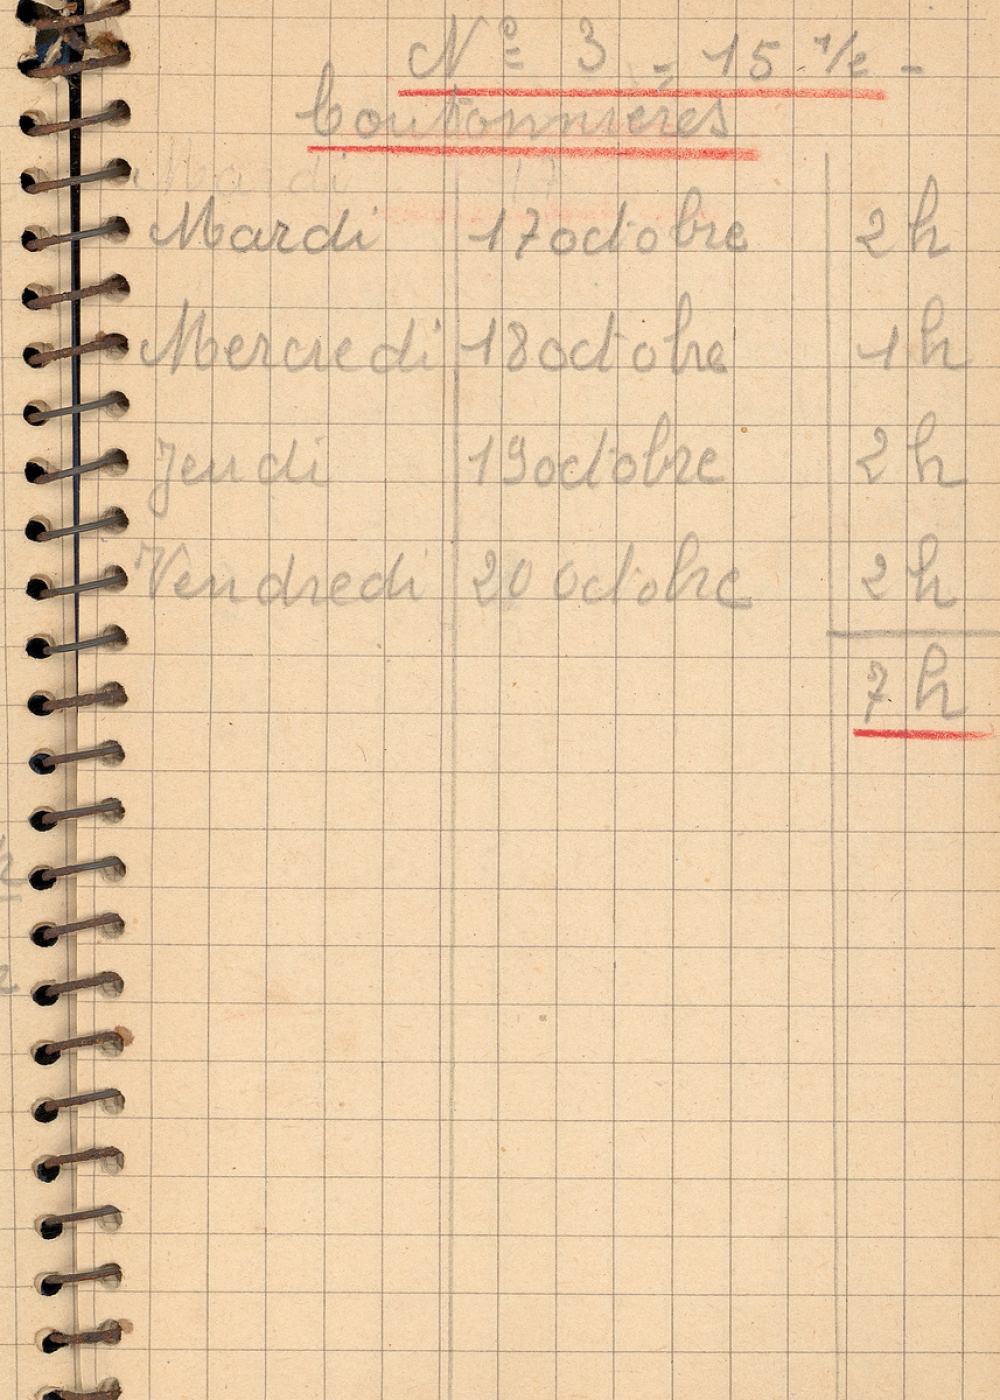 Nº 3 = 15 1/2 -
boutonnières
Mardi 17
Mardi 17 octobre 2 h
Mercredi 18 octobre 1 h
Jeudi 19 octobre 2 h
Vendredi 20 octobre 2 h
7 h